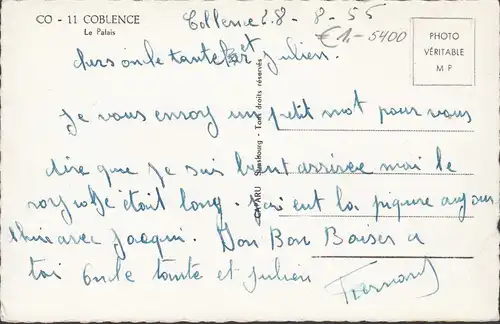 CO - 11 COBLENCE
Le Palais
Coblence 28-8-55
€1,- 5400
PHOTO
VÉRITABLE
M F
chers oncle tante et julien.
je vous envoy un petit mot pour vous
dire que je suis bient arrivée mai le
voyage était long. j'ai eut la piqure aujour
thui avec jacqui. Bon Bon Baiser a
toi oncle tante et julien
Fernand
CAP-ARU Strasbourg - Tous droits réservés